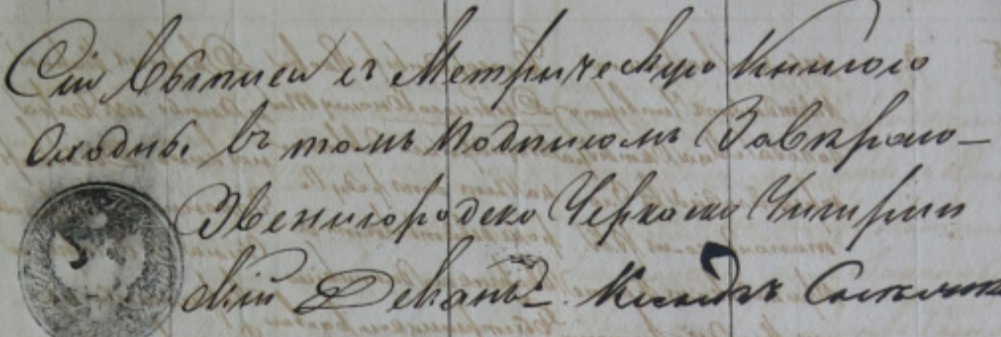 Сіи Выписи съ Метрическую Книгою
Сходны. въ томъ подписомъ Завѣряю—
Звенигородско Черкаско Чигирин
скій Деканъ. Ксендзъ